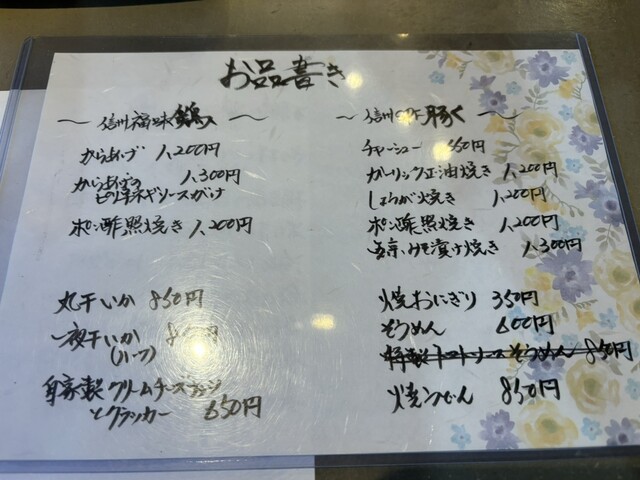 お品書き
〜 信州福味鶏 〜
からあげ 1,200円
からあげの 1,300円
ピリ辛ネギソースがけ
ポン酢照焼き 1,200円
丸干いか 850円
一夜干いか
(ハーフ)
自家製クリームチーズ
とクラッカー 650円
〜 信州 豚 〜
チャーシュー 550円
ガーリック正油焼き 1,200円
しょうが焼き 1,200円
ポン酢照焼き 1,200円
みそ漬け焼き 1,300円
焼おにぎり 350円
そうめん 600円
特製トマトソースそうめん 850円
焼うどん 850円